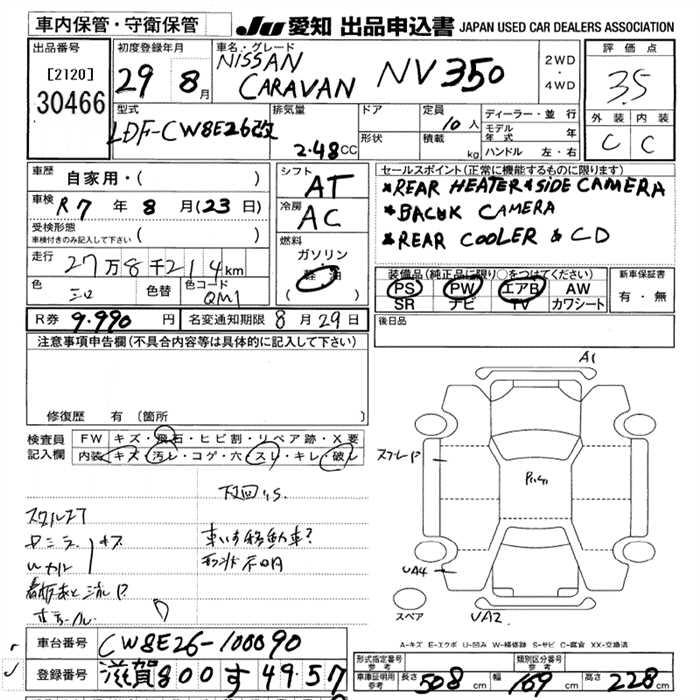 車内保管・守衛保管
JU 愛知 出品申込書 JAPAN USED CAR DEALERS ASSOCIATION
出品番号
[2120]
30466
初度登録年月
29 8月
車名・グレード
NISSAN CARAVAN NV350
2WD
・
4WD
評価点
3.5
外装 内装
C C
型式
LDF-CW8E26改
排気量
2.48CC
ドア
形状
定員
10人
積載
kg
ディーラー・並行
モデル年式 年
ハンドル 左・右
車歴
自家用・( )
車検
R7年8月(23日)
受検形態
車検付きのみ記入して下さい ( )
走行
27万8千214km
色
色替
色コード
QM1
シフト
AT
冷房
AC
燃料
ガソリン
・
軽油
( )
セールスポイント(正常に機能するものに限ります)
*REAR HEATER *SIDE CAMERA
*BACUK CAMERA
*REAR COOLER & CD
装備品(純正品に限り○をつけてください)
PS PW エアB AW
SR ナビ TV カワシート
新車保証書
有・無
R券 9.990円
名変通知期限 8月29日
後日品
注意事項申告欄(不具合内容等は具体的に記入して下さい)
修復歴 有 (箇所
検査員記入欄
FW キズ・飛石・ヒビ割・リペア跡・X要
内装 キズ・汚レ・コゲ・穴・スレ・キレ・破レ
下回りS.
車いす移動車?
A1
UA4
UA2
スペア
A-キズ E-エクボ U-凹み W-補修跡 S-サビ C-腐食 XX-交換済
車台番号 CW8E26-100090
登録番号 滋賀800す4957
形式指定番号
参考
類別区分番号
参考
車庫証明用
参考
長さ 508cm
幅 169cm
高さ 228cm